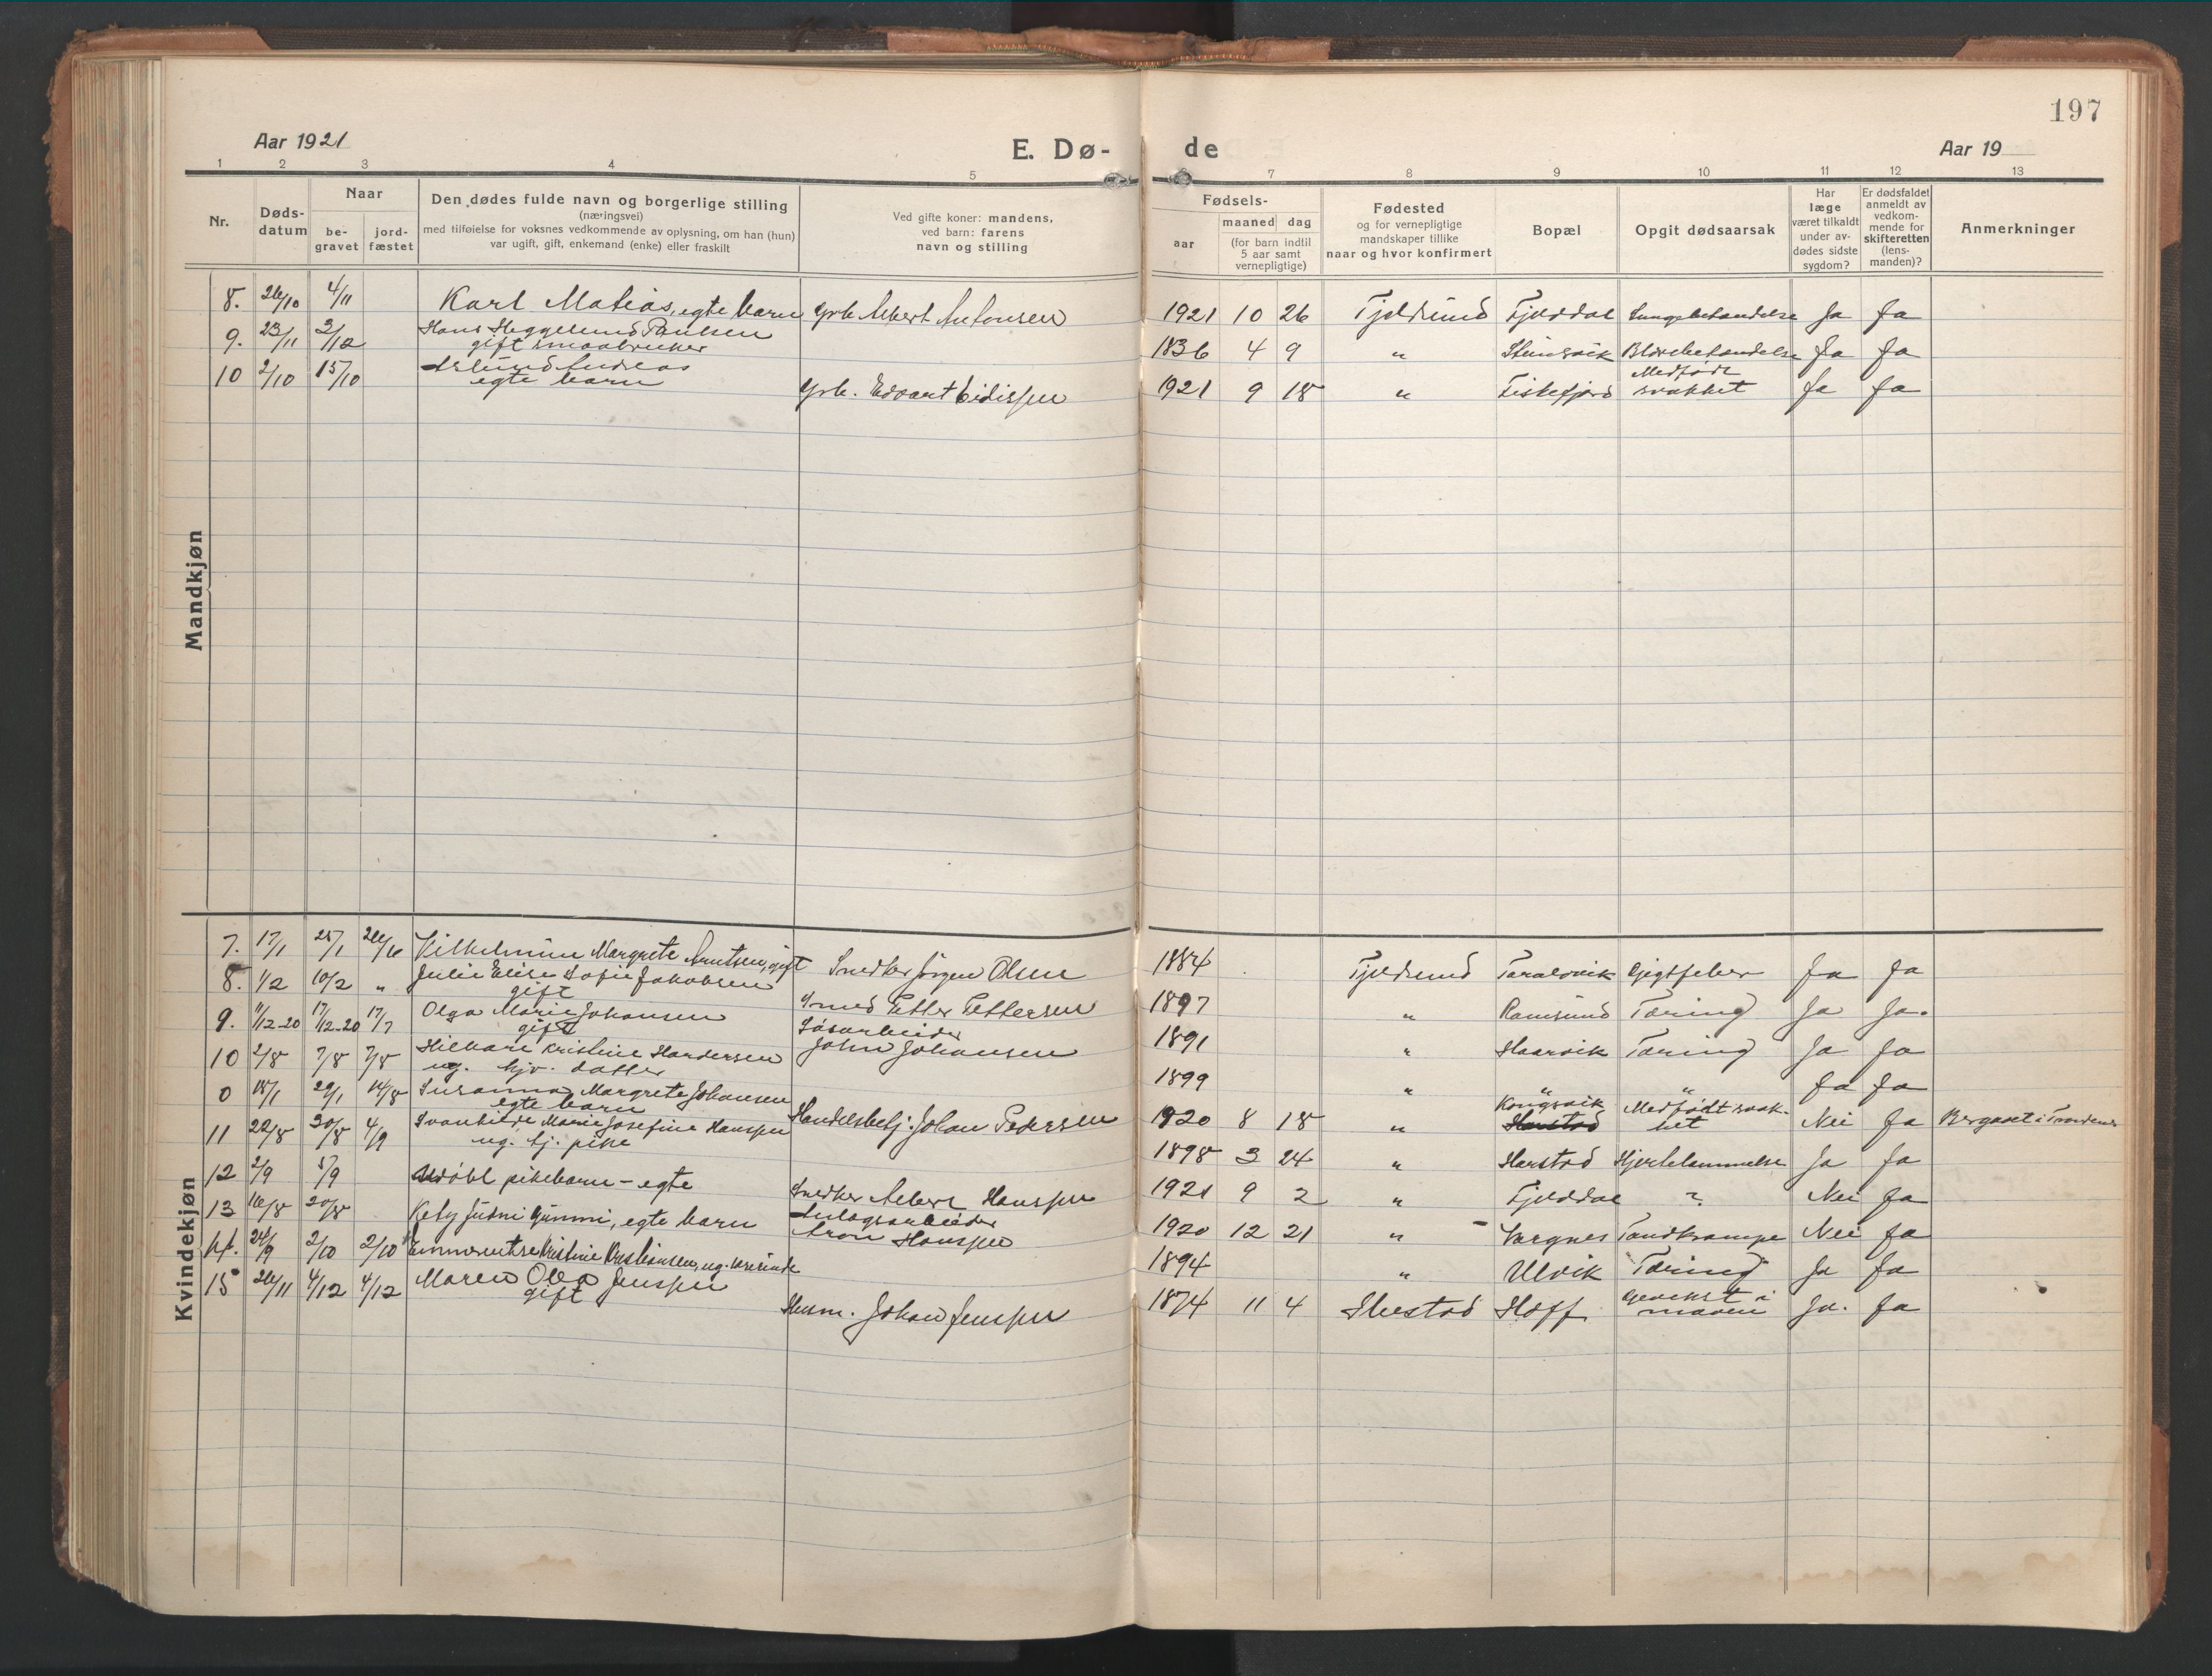 197
Aar 1921
E. Dø-
de
Aar 19
1 2 3 4 5 7 8 9 10 11 12 13
Nr.
Døds-
datum
Naar
be-
gravet
jord-
fæstet
Den dødes fulde navn og borgerlige stilling
(næringsvei)
med tilføielse for voksnes vedkommende av oplysning, om han (hun)
var ugift, gift, enkemand (enke) eller fraskilt
Ved gifte koner: mandens,
ved barn: farens
navn og stilling
Fødsels-
aar
maaned dag
(for barn indtil
5 aar samt
vernepligtige)
Fødested
og for vernepligtige
mandskaper tillike
naar og hvor konfirmert
Bopæl
Opgit dødsaarsak
Har
læge
været tilkaldt
under av-
dødes sidste
sygdom?
Er dødsfaldet
anmeldt av
vedkom-
mende for
skifteretten
(lens-
manden)?
Anmerkninger
Mandkjøn
8. 26/10 4/11 Karl Matias, egte barn Grb. Albert Antonsen 1921 10 26 Tjeldsund Fjelddal Lungebetændelse Ja Ja
9. 23/11 3/12 Hans Heggelund Paulsen
gift smaabruker 1836 4 9 " Steinsvik Blærebetændelse Ja Ja
10 2/10 15/10 Andreas
egte barn Grb. Edvart Eidissen 1921 9 18 " Fiskefjord Medfødt
svakhet Ja Ja
Kvindekjøn
7. 17/1 25/1 26/6 Vilhelmine Margrete Knutsen, gift Snedker Jørgen Olsen 1884 Tjeldsund Taralsvik Gigtfeber Ja Ja
8. 1/2 10/2 " Julie Elise Sofie Jakobsen
gift Smed Petter Pettersen 1897 " Ramsund Tæring Ja Ja.
9. 11/12-20 17/12-20 17/7 Olga Marie Johansen
gift Løsarbeider
John Johansen 1891 " Haarvik Tæring Ja Ja
10 2/8 7/8 7/8 Kristine
ug. hjv. datter 1899 " " " Ja Ja
0 18/1 29/1 14/8 Susanna Margrete Johansen
egte barn Handelsbetj. Johan Pedersen 1920 8 18 " Kongsvik
Harstad Medfødt svak-
het Nei Ja
11 22/8 30/8 4/9 Svanhilde Marie Josefine Hanssen
ug. tj. pike 1898 3 24 " Harstad Hjertelammelse Ja Ja
12 2/9 5/9 Udøbt pikebarn - egte Snedker Albert Hanssen 1921 9 2 " Fjelddal ? Nei Ja
13 16/8 20/8 Judni Gunni, egte barn Anlægsarbeider
Aron Hanssen 1920 12 21 " Tandkrampe Nei Ja
14. 24/9 2/10 2/10 Emmerentse Kristine Kristiansen, ug. 1894 " Ulvik Tæring Ja Ja
15 26/11 4/12 4/12 Maren Olea Jenssen
gift Husm. Johan Jenssen 1874 11 4 Hoff Gevekst i
maven Ja. Ja